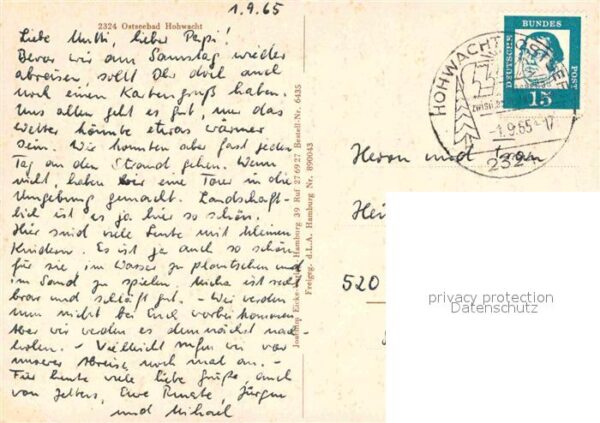 1.9.65
2324 Ostseebad Hohwacht
Liebe Mutti, lieber Papi!
Bevor wir am Samstag wieder
abreisen, sollt Ihr doch auch
noch einen Kartengruß haben.
Uns allen geht es gut, nur das
Wetter könnte etwas wärmer
sein. Wir konnten aber fast jeden
Tag an den Strand gehen. Wenn
nicht, haben wir eine Tour in die
Umgebung gemacht. Landschaft-
lich ist es ja hier so schön.
Hier sind viele Leute mit kleinen
Kindern. Es ist ja auch so schön
für sie, im Wasser zu plantschen und
im Sand zu spielen. Micha ist sehr
brav und schläft gut. - Wir werden
nun nicht bei Euch vorbeikommen
Aber wir werden es demnächst nach-
holen. - Vielleicht rufen wir vor
unserer Abreise noch mal an. -
Für heute viele liebe Grüße, auch
von Eure Renate, Jürgen
und Michael
Hamburg 39 Ruf 27 69 27 Bestell-Nr. 6435
Freigeg. d. L.A. Hamburg Nr. 890043
DEUTSCHE
BUNDES
POST
15
HOHWACHT
-1.9.65-17
232
Herrn und Frau
520
privacy protection
Datenschutz